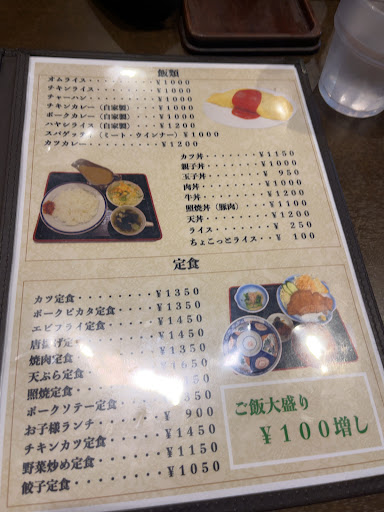 飯類
オムライス・・・・・・・¥1000
チキンライス・・・・・・¥1000
チャーハン・・・・・・・¥1000
チキンカレー（自家製）・・¥1000
ポークカレー（自家製）・・¥1000
ハヤシライス（自家製）・・¥1200
スパゲッティ（ミート・ウインナー）¥1000
カツカレー・・・・・・・¥1200
カツ丼・・・・・・・¥1150
親子丼・・・・・・・¥1000
玉子丼・・・・・・・¥ 950
肉丼・・・・・・・・¥1000
牛丼・・・・・・・・¥1200
照焼丼（豚肉）・・・¥1100
天丼・・・・・・・・¥1200
ライス・・・・・・・¥ 250
ちょこっとライス・・¥ 100
定食
カツ定食・・・・・・・・¥1350
ポークピカタ定食・・・・¥1350
エビフライ定食・・・・・¥1450
唐揚定食・・・・・・・・¥1350
焼肉定食・・・・・・・・¥1650
天ぷら定食・・・・・・・¥1450
照焼定食・・・・・・・・1350
ポークソテー定食・・・・1350
お子様ランチ・・・・・・¥ 900
チキンカツ定食・・・・・¥1450
野菜炒め定食・・・・・・¥1150
餃子定食・・・・・・・・¥1050
ご飯大盛り
¥100増し